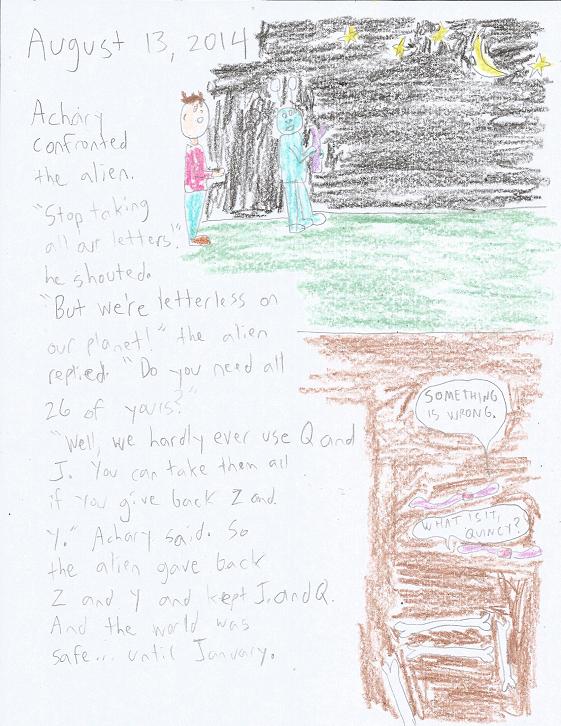 August 13, 2014
Achary
confronted
the alien.
"Stop taking
all our letters."
he shouted.
"But we're letterless on
our planet!" the alien
replied. "Do you need all
26 of yours?"
"Well, we hardly ever use Q and
J. You can take them all
if you give back Z and
Y." Achary said. So
the alien gave back
Z and Y and kept J and Q.
And the world was
safe... until January.
SOMETHING
IS WRONG.
WHAT IS IT,
QUINCY?